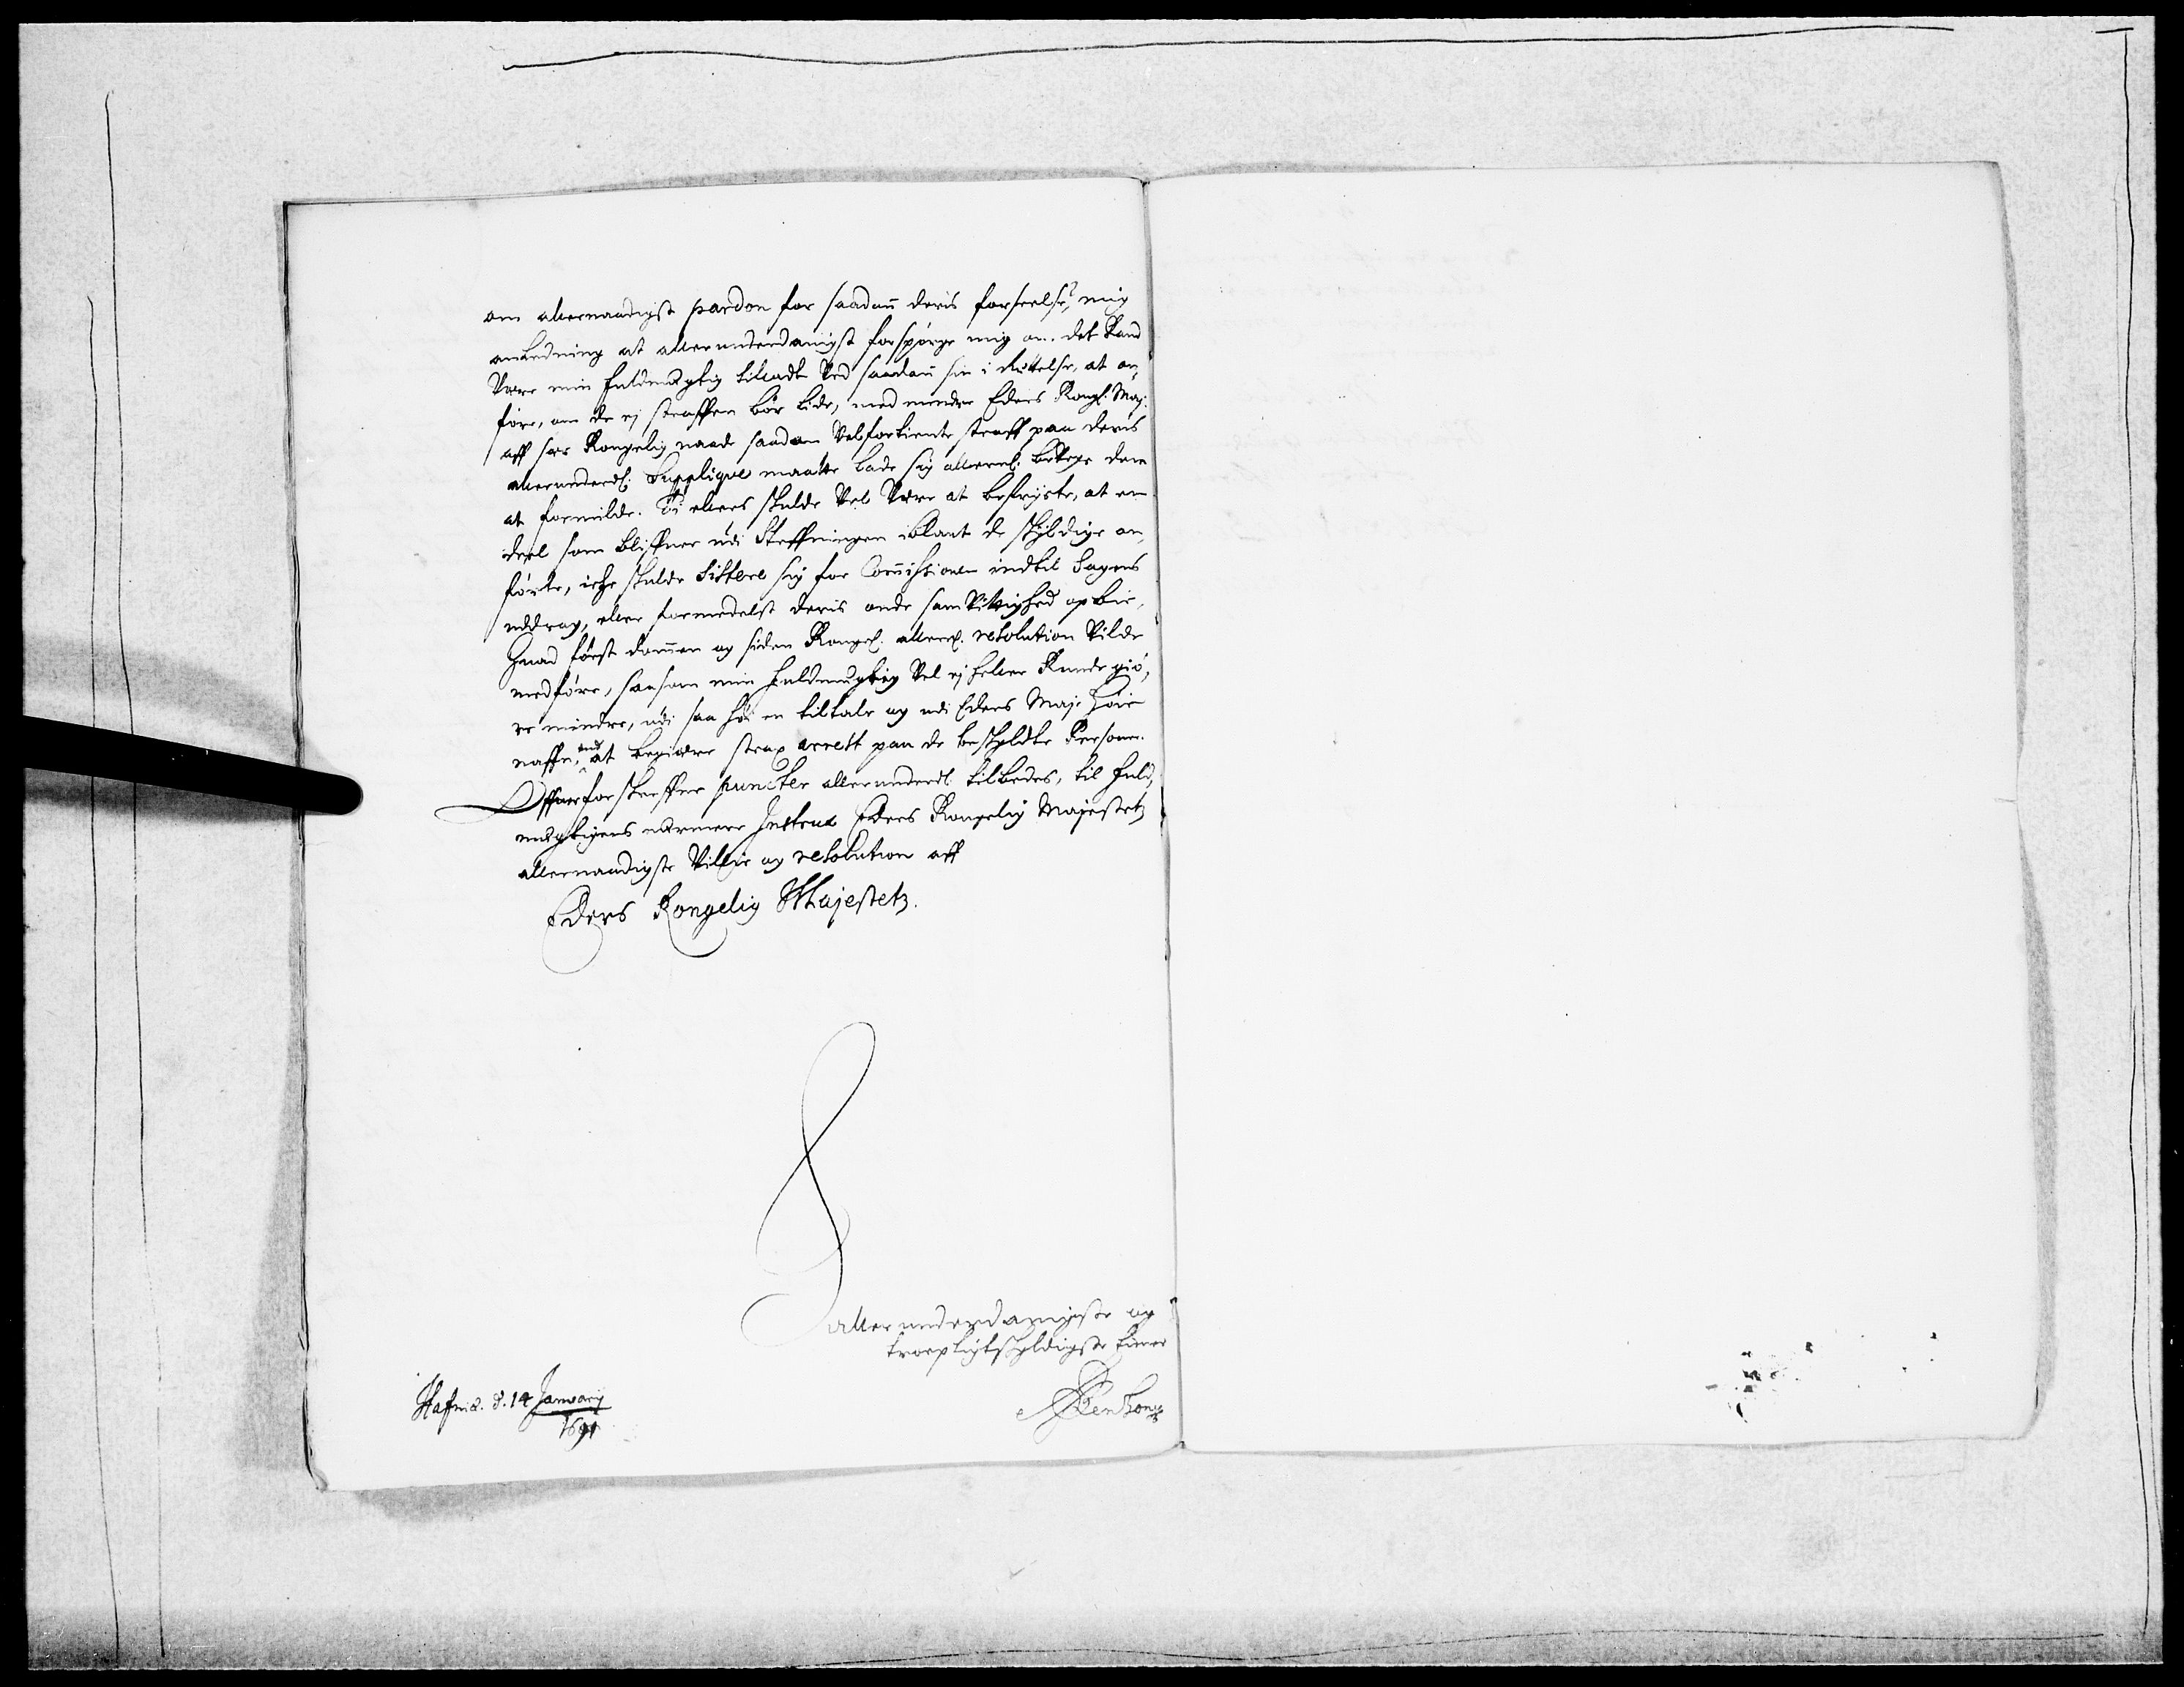 om allernaadigst pardon for saadan deris forseelse, mig
anledning at allerunderdanigst forspørge mig om det Kand
Være min fuldmegtig tilladt Ved saadan sin i Rettelse, at an¬
føre, om de ej straffen bør lide, med mindre Eders Kongl: Maj:
aff sær Kongelig naade saadan Velfortiente straff paa deris
allerunderd: Supplique maatte lade sig allern: bevege dem
at formilde. Ti ellers skulde Vel Være at befrygte, at en
deel som bliffuer udi Steffningen iblant de skyldige an¬
førte, icke skulde Sistere sig for Commissionen indtil Sagens
uddrag, eller formedelst deris onde samvittighed opbie,
huad først dommen og siden Kongel: allern: resolution Vilde
medføre, saasom min fuldmegtig Vel ej heller Kunde giø¬
re mindre, udi saa høi en tiltale og udi Eders Maj: høie
naffn, end at begiære strax arrest paa de beskyldte Personer.
Offuerforskreffne puncter allerunderd: tilbedes, til fuld¬
megtigens nærmere Instrux Eders Kongelig Majestetz
allernaadigste Villie og resolution aff
Eders Kongelig Majestetz.
allerunderdanigste og
troepligtskyldigste tiener
Hafniæ. d. 14 Januarij
1691